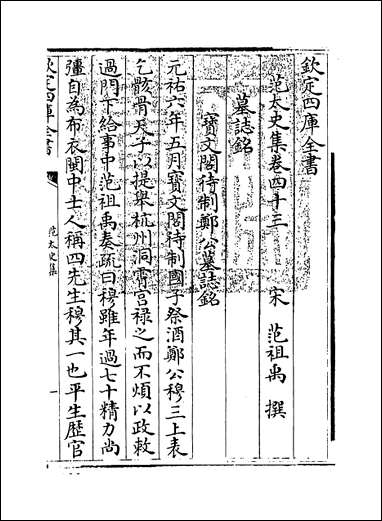 欽定四庫全書
范太史集卷四十三　宋　范祖禹　撰
墓誌銘
寳文閣待制鄭公墓誌銘
元祐六年五月寳文閣待制國子祭酒鄭公穆三上表
乞骸骨天子以提舉杭州洞霄宫禄之而不煩以政敕
過門下給事中范祖禹奏疏曰穆雖年過七十精力尚
彊自為布衣閩中士人稱四先生穆其一也平生歴官
欽定四庫全書
范太史集
一